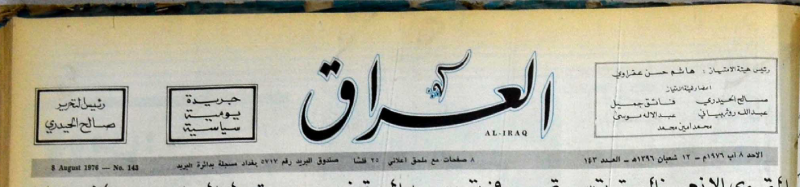 رئيس هيئة الامتياز : هاشم حسن عقراوي
اعضاء هيئة الامتياز
صالح الحيدري فائق جميل
عبدالله روژبياني عبدالاله موسى
محمد امين محمد
العراق
AL-IRAQ
جريدة
يومية
سياسية
رئيس التحرير
صالح الحيدري
الاحد ٨ آب ١٩٧٦م — ١٢ شعبان ١٣٩٦هـ — العدد ١٤٣
٨ صفحات مع ملحق اعلاني ٢٥ فلسا صندوق البريد رقم ٥٧١٧ بغداد مسجلة بدائرة البريد
8 August 1976 — No. 143